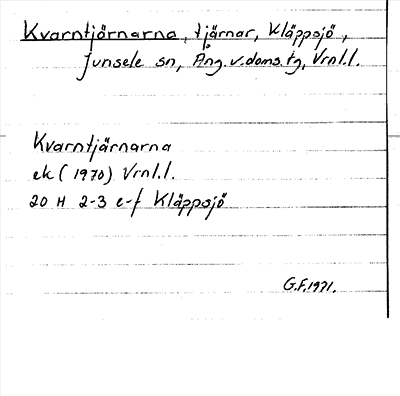 Kvarntjärnarna, tjärnar, Kläppsjö,
Junsele sn, Ång.v.doms.tg, Vrnl.l.
Kvarntjärnarna
ek (1970) Vrnl.l.
20 H 2-3 e-f Kläppsjö
G.F.1971.